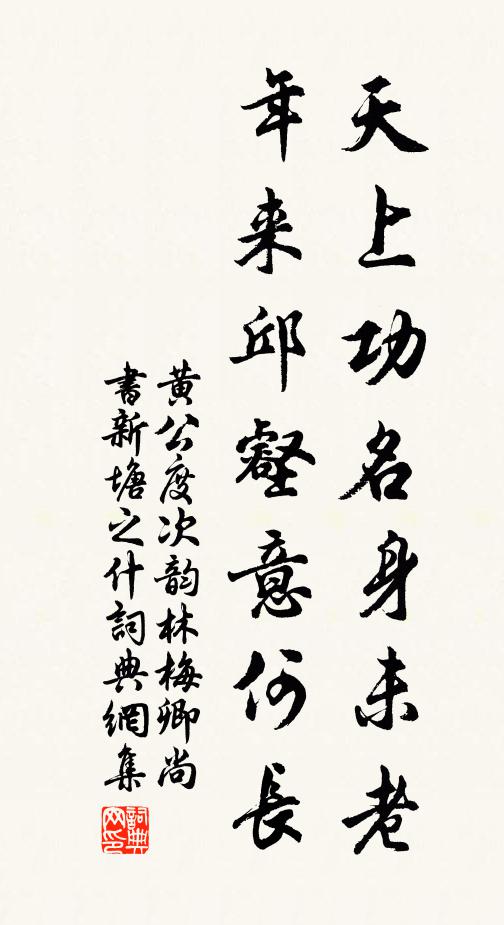 天上功名身未老
年来邱壑意何長
黄公度次韵林梅卿尚
書新塘之什詞典網集
詞典網印